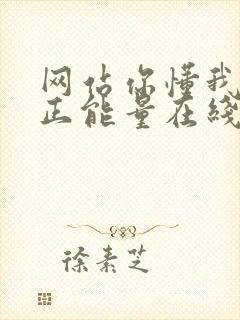 网佔你懂我
正能量在线
徐素芝